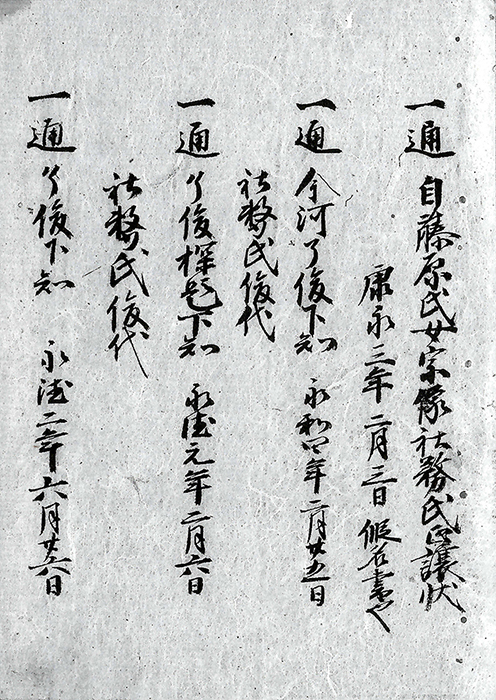 一通 自藤原氏女宗像社務氏正譲状
康永三年二月三日 假名書也
一通 今河了俊下知 永和四年二月廿五日
社務氏俊代
一通 了俊探題下知 永徳元年二月六日
社務氏俊代
一通 了俊下知 永徳二年六月廿六日